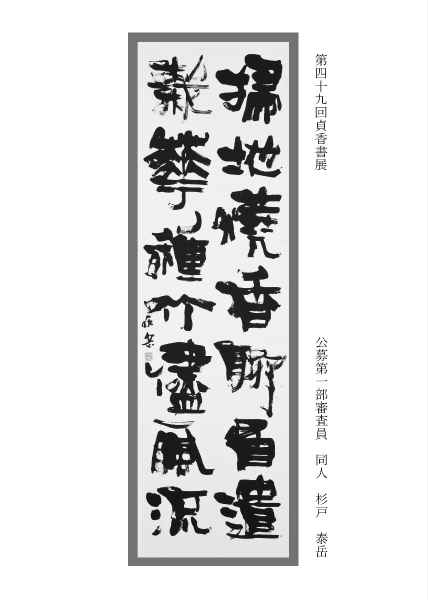 第四十九回貞香書展
公募第一部審査員　同人　杉戸　泰岳
掃地燒香聊自遣
栽華種竹儘風流